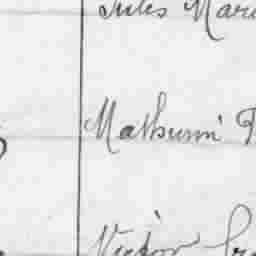 Jules Mari
Mathurin
Victor